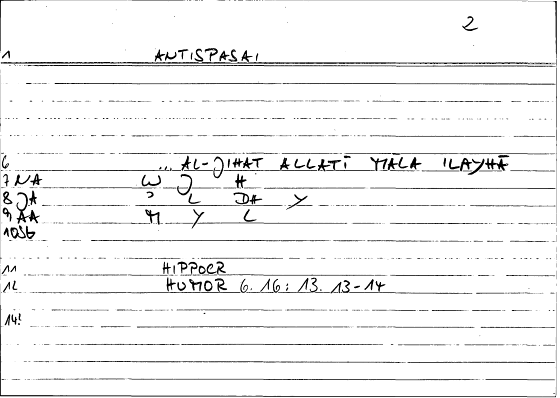 2
1 ANTISPASAI
6 ... AL-JIHAT ALLATĪ MĀLA ILAYHĀ
7 NA W J H
8 JA L DH Y
9 AA M Y L
10 SB
11 HIPPOCR
12 HUMOR 6. 16: 13. 13-14
14!